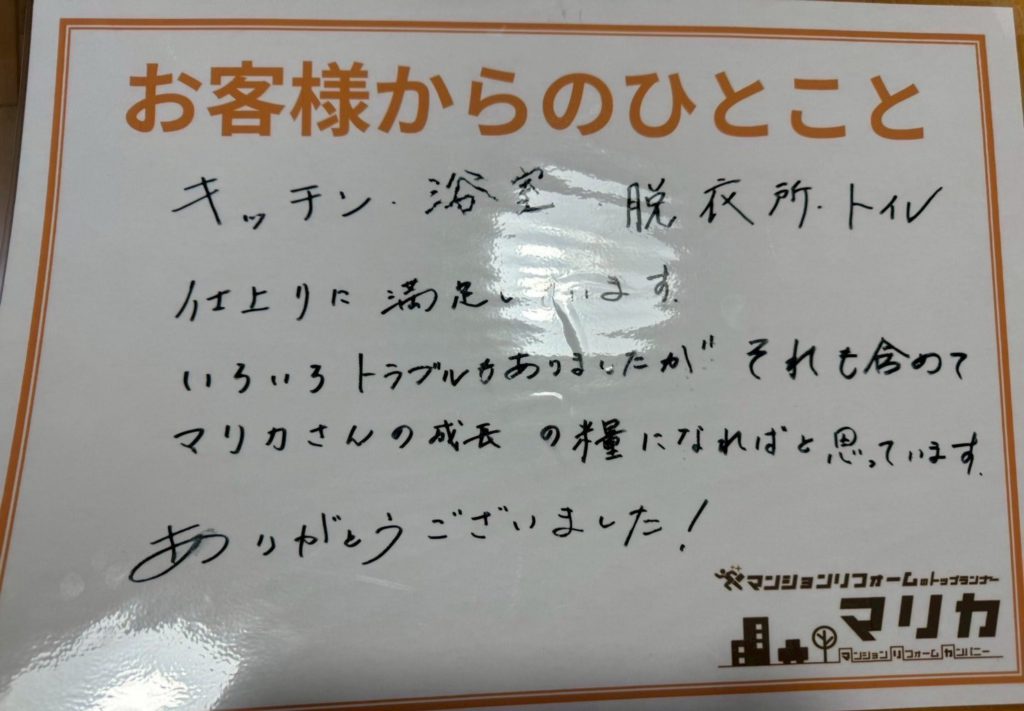 お客様からのひとこと
キッチン・浴室・脱衣所・トイレ
仕上りに満足しています。
いろいろトラブルもありましたが それも含めて
マリカさんの成長の糧になればと思っています。
ありがとうございました!
マンションリフォームのトップランナー
マリカ
マンションリフォームカンパニー